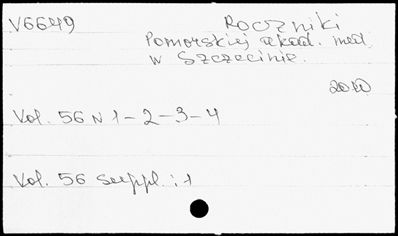 V6649 Roczniki
Pomorskiej akad. med.
w Szczecinie.
2010
Vol. 56 N 1-2-3-4
Vol. 56 suppl.: 1